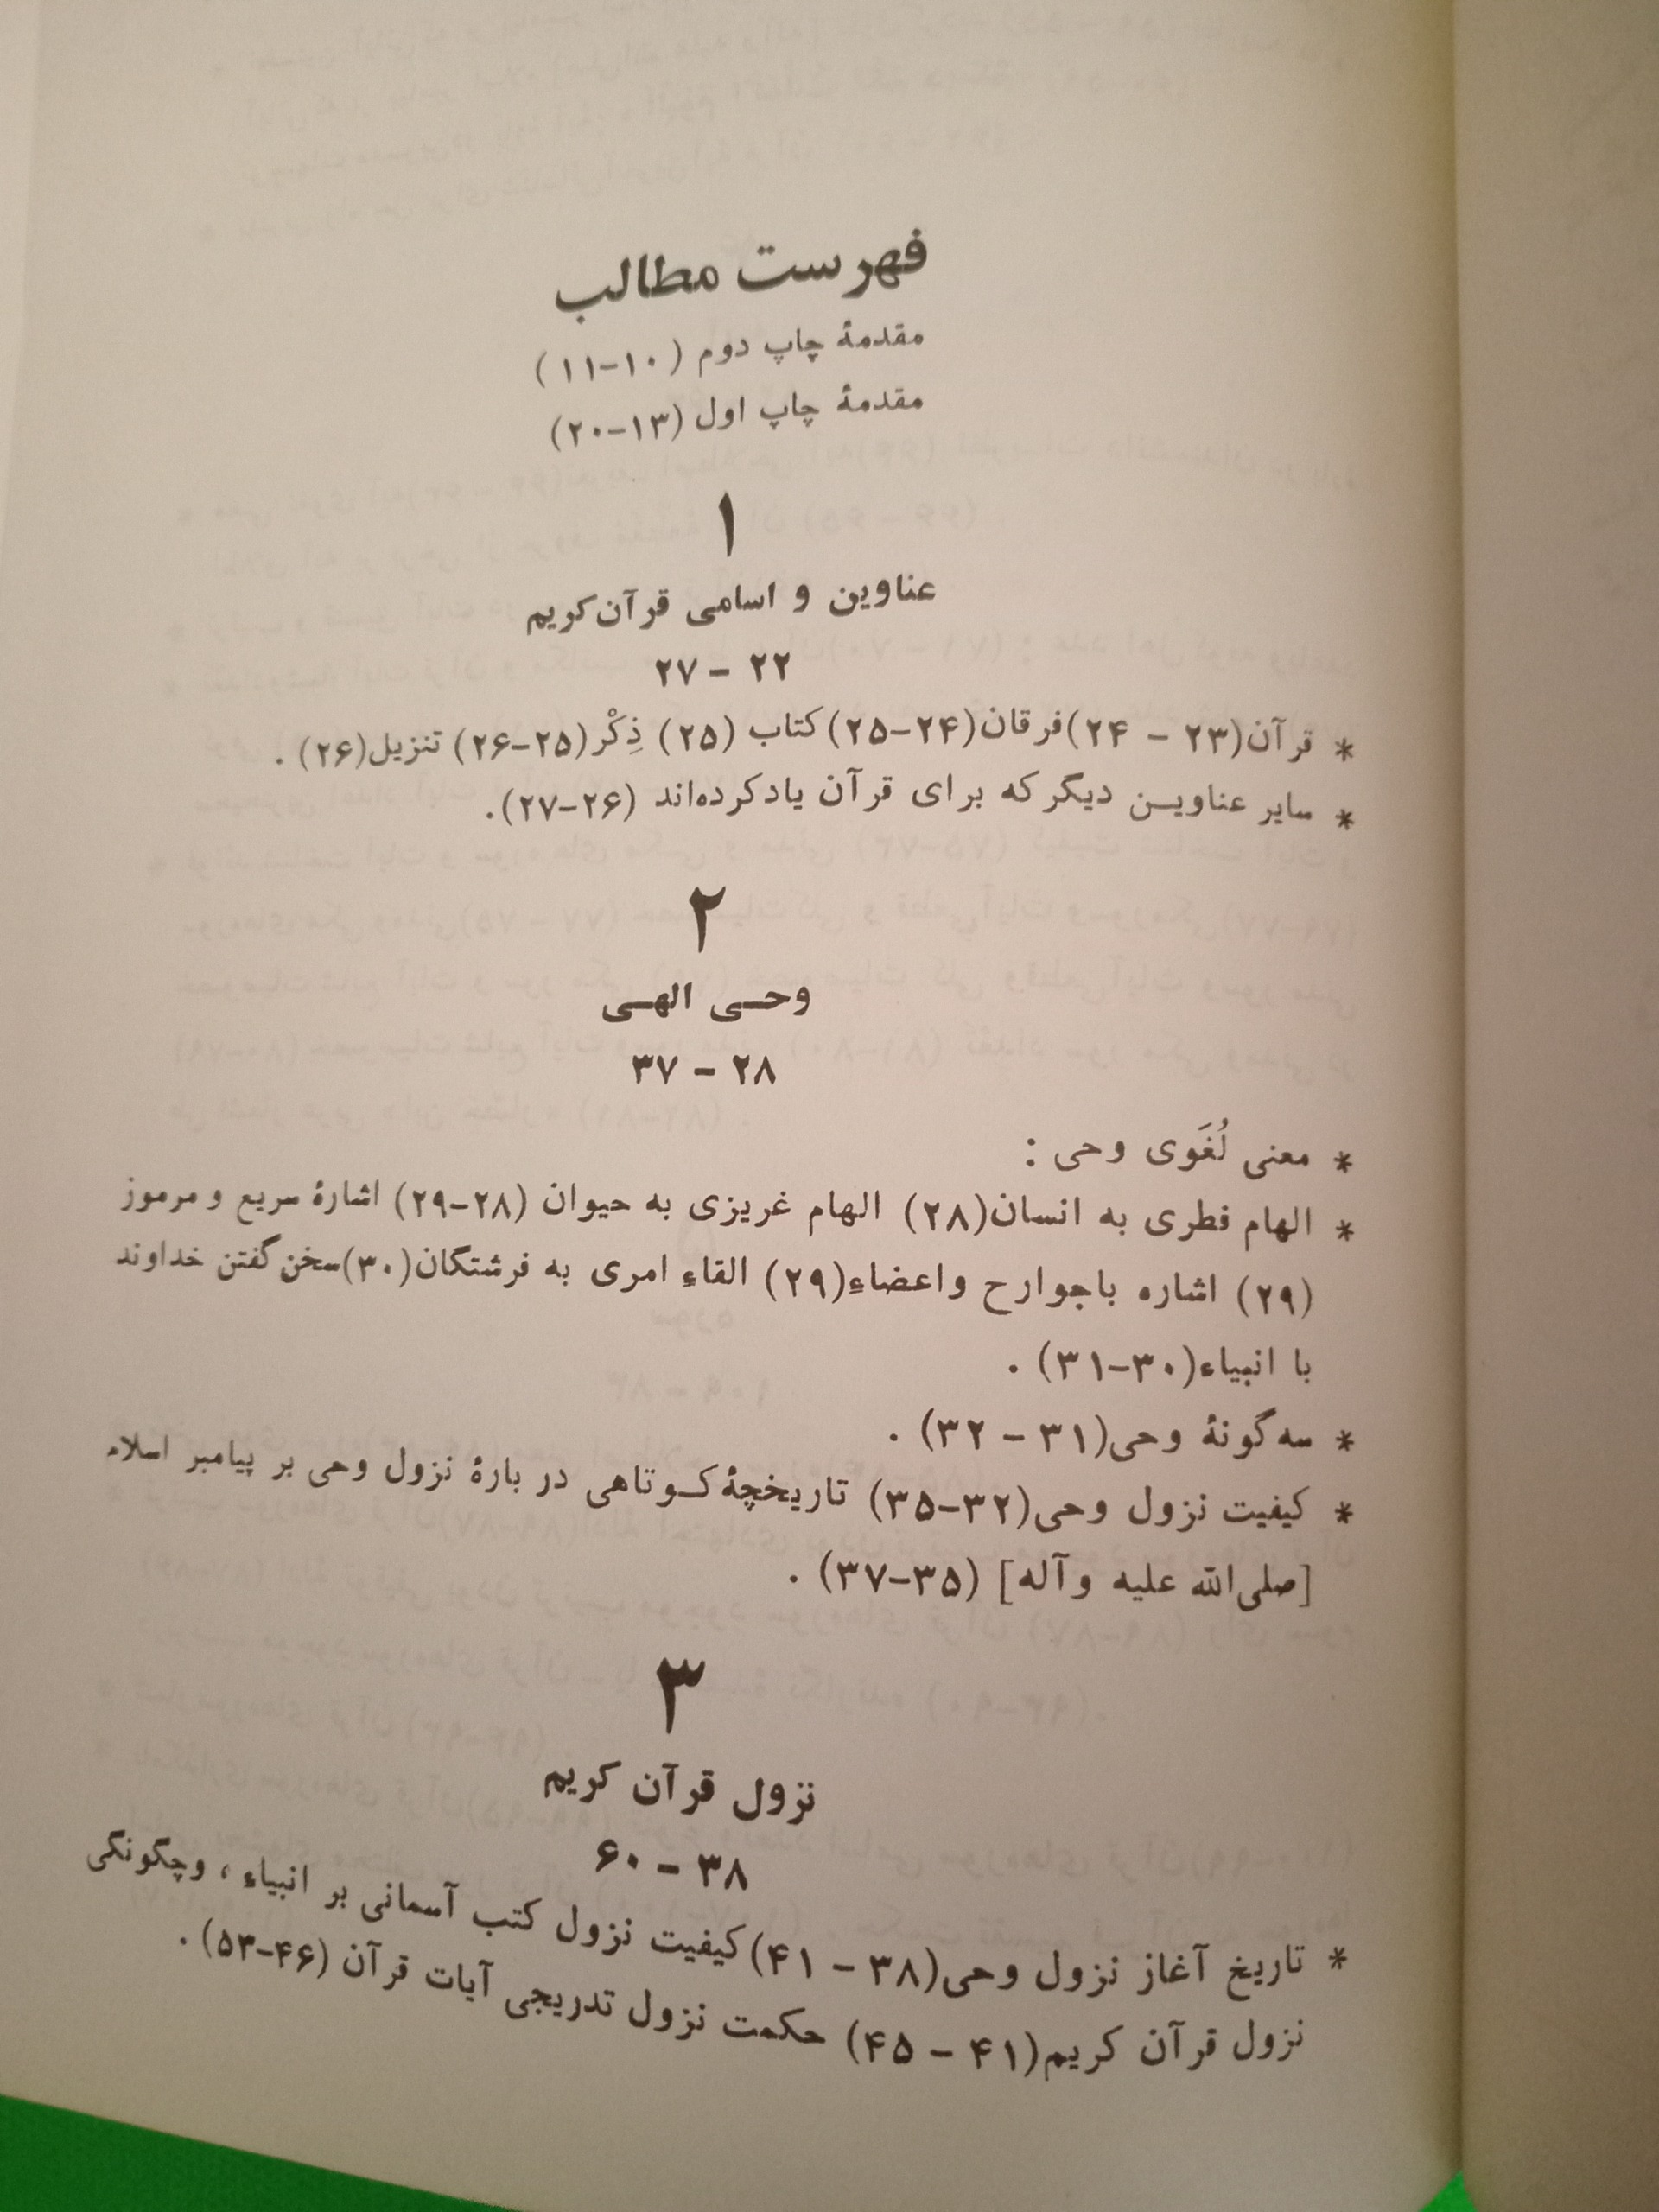 فهرست مطالب
مقدمهٔ چاپ دوم (۱۰–۱۱)
مقدمهٔ چاپ اول (۱۳–۲۰)
۱
عناوین و اسامی قرآن‌کریم
۲۲ – ۲۷
* قرآن(۲۳ – ۲۴)فرقان(۲۴–۲۵)کتاب (۲۵) ذِکْر(۲۵–۲۶) تنزیل(۲۶) .
* سایر عناوین دیگر که برای قرآن یادکرده‌اند (۲۶–۲۷).
۲
وحی الهی
۲۸ – ۳۷
* معنی لُغَوی وحی :
* الهام فطری به انسان(۲۸) الهام غریزی به حیوان (۲۸–۲۹) اشارهٔ سریع و مرموز
(۲۹) اشاره باجوارح واعضاء(۲۹) القاء امری به فرشتگان(۳۰)سخن گفتن خداوند
با انبیاء(۳۰–۳۱) .
* سه گونهٔ وحی(۳۱ – ۳۲) .
* کیفیت نزول وحی(۳۲–۳۵) تاریخچهٔ کوتاهی در بارهٔ نزول وحی بر پیامبر اسلام
[صلی‌الله علیه وآله] (۳۵–۳۷) .
۳
نزول قرآن کریم
۳۸ – ۶۰
* تاریخ آغاز نزول وحی(۳۸ – ۴۱)کیفیت نزول کتب آسمانی بر انبیاء ، وچگونگی
نزول قرآن کریم(۴۱ – ۴۵) حکمت نزول تدریجی آیات قرآن (۴۶–۵۳).